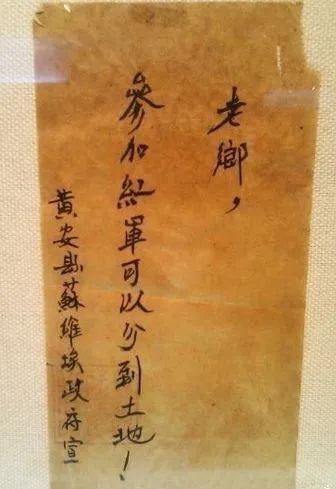 老鄉，
參加紅軍可以分到土地！
黃安縣蘇維埃政府宣